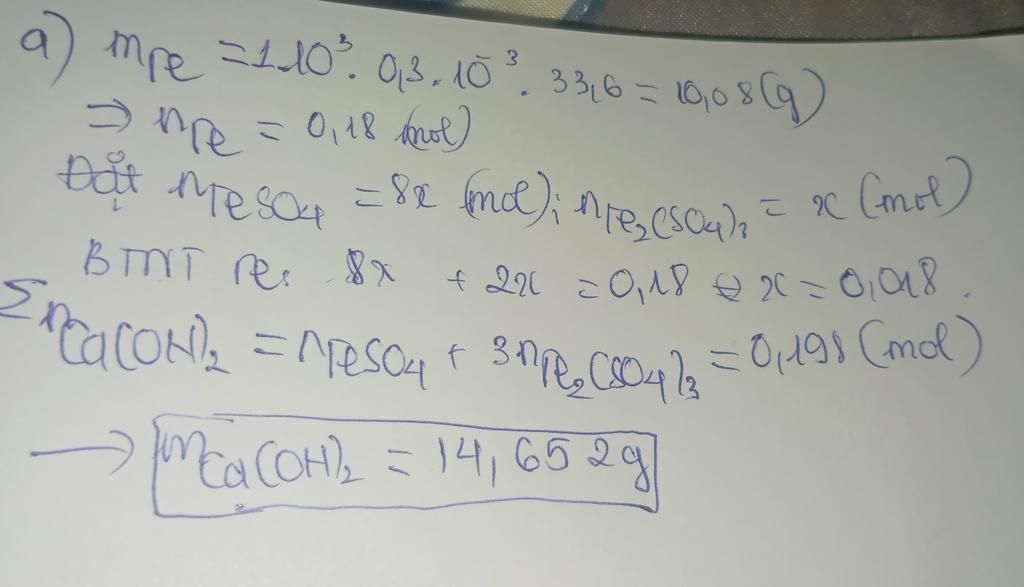 a) mFe = 1.10³. 0,3.10⁻³. 33,6 = 10,08 (g)
⇒ nFe = 0,18 (mol)
Đặt nFeSO4 = 8x (mol); nFe2(SO4)3 = x (mol)
BTNT Fe: 8x + 2x = 0,18 ⇔ x = 0,018.
Σ nCa(OH)2 = nFeSO4 + 3nFe2(SO4)3 = 0,198 (mol)
→ mCa(OH)2 = 14,652g